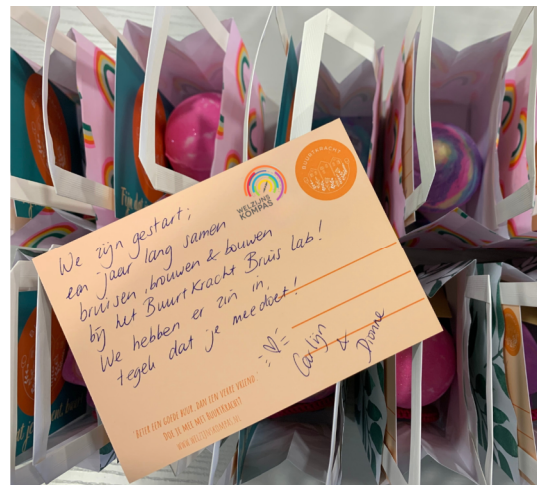 WELZIJNS
KOMPAS
BUURTKRACHT
We zijn gestart;
een jaar lang samen
bruisen, brouwen & bouwen
bij het BuurtKracht Bruis lab!
We hebben er zin in,
tegek dat je meedoet!
Carlijn
&
Dionne
"BETER EEN GOEDE BUUR, DAN EEN VERRE VRIEND."
DOE JE MEE MET BUURTKRACHT?
WWW.WELZIJNSKOMPAS.NL